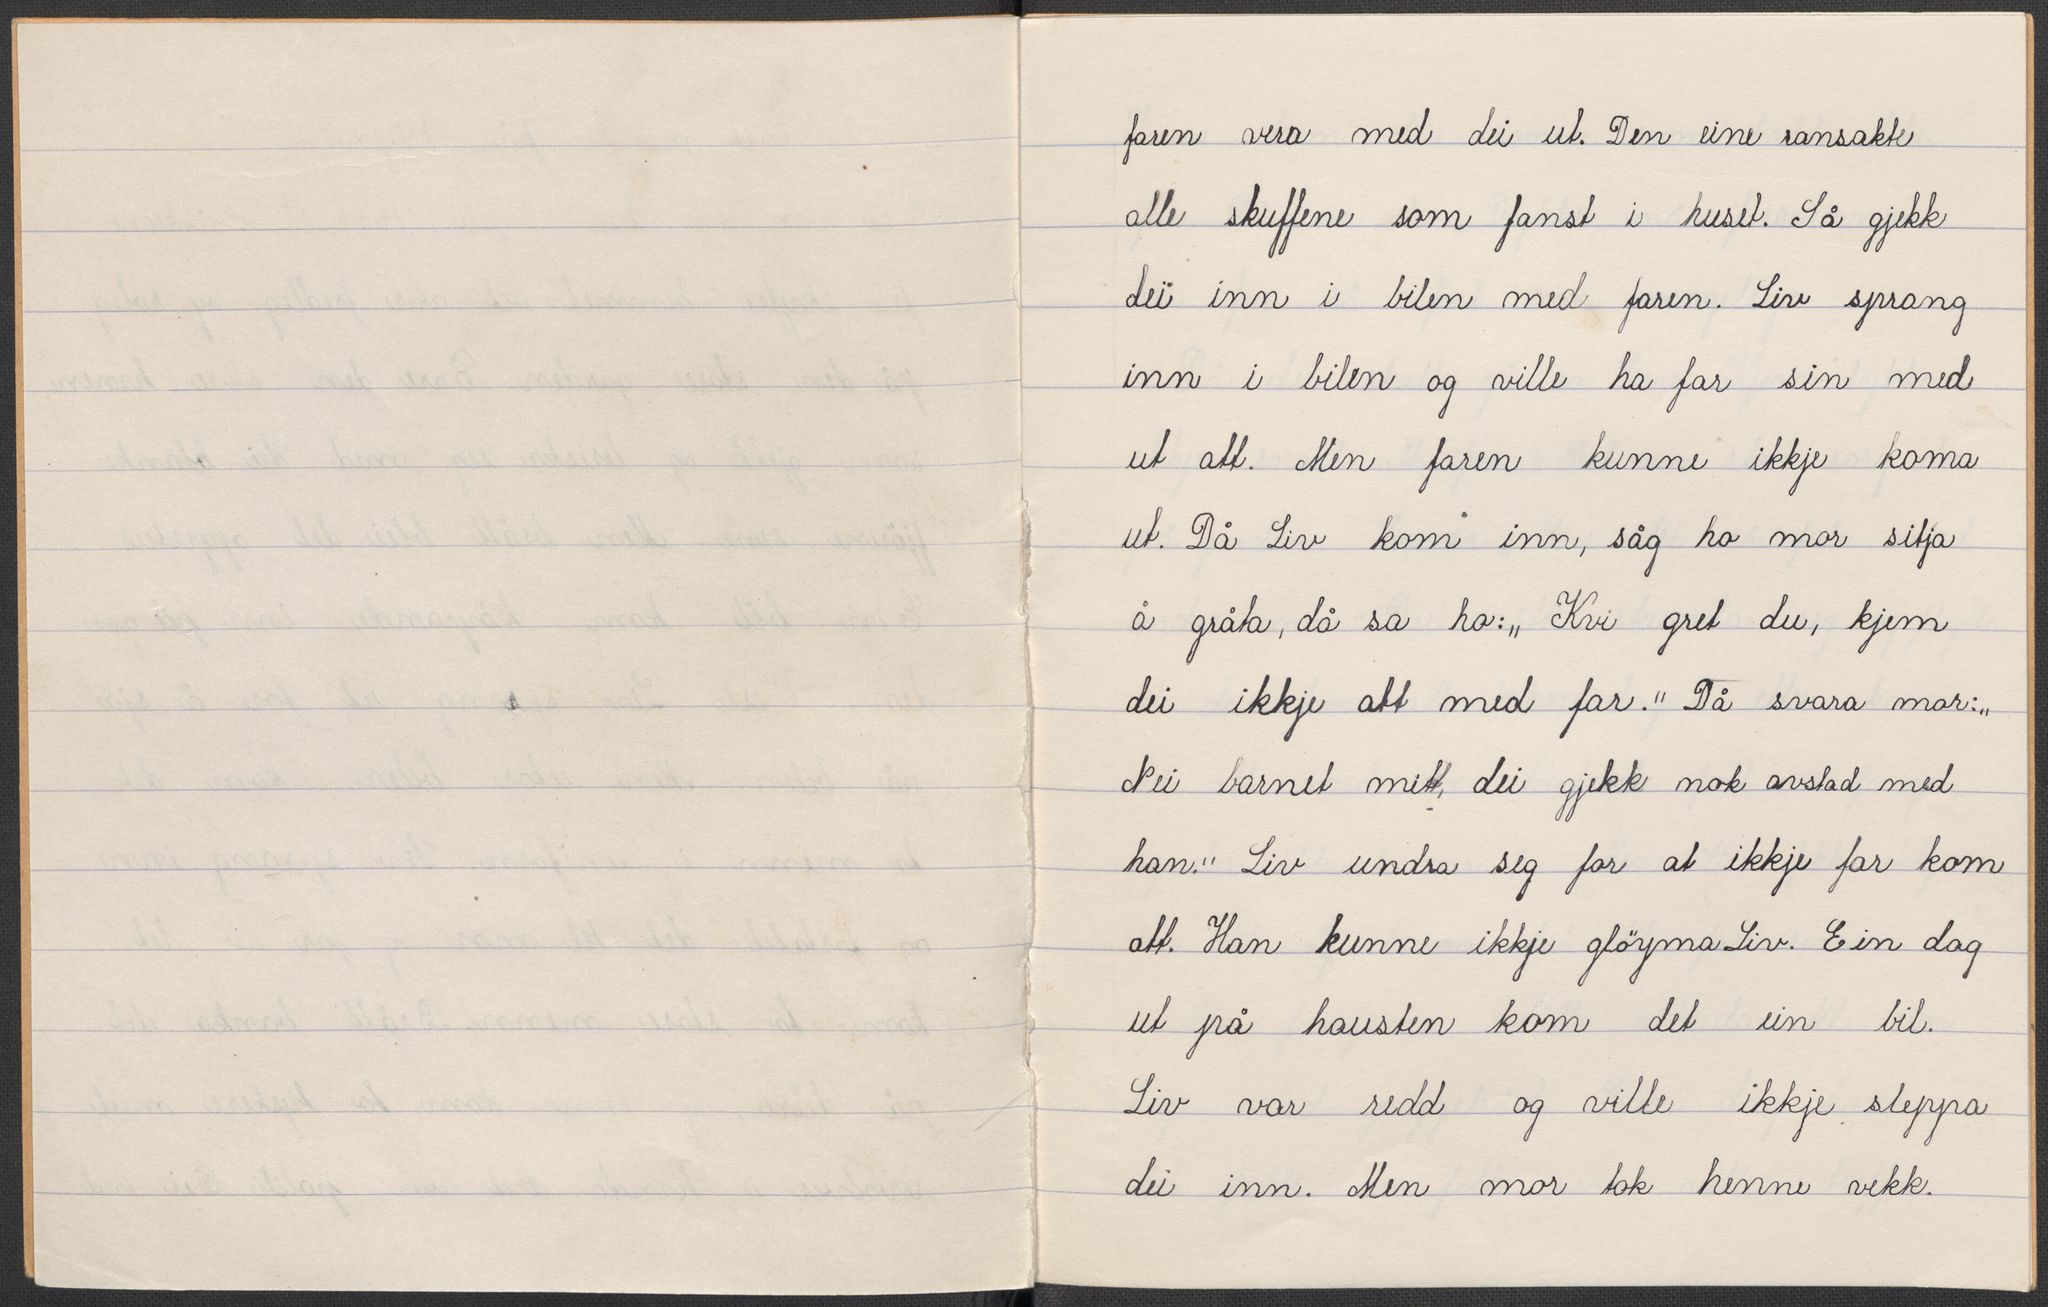 faren vera med dei ut. Den eine ransakte
alle skuffene som fanst i huset. Så gjekk
dei inn i bilen med faren. Liv sprang
inn i bilen og ville ha far sin med
ut att. Men faren kunne ikkje koma
ut. Då Liv kom inn, såg ho mor sitja
å gråta, då sa ho:„ Kvi gret du, kjem
dei ikkje att med far." Då svara mor:„
Nei barnet mitt, dei gjekk nok avstad med
han." Liv undra seg for at ikkje far kom
att. Han kunne ikkje glöyma Liv. Ein dag
ut på hausten kom det ein bil.
Liv var redd og ville ikkje sleppa
dei inn. Men mor tok henne vekk.